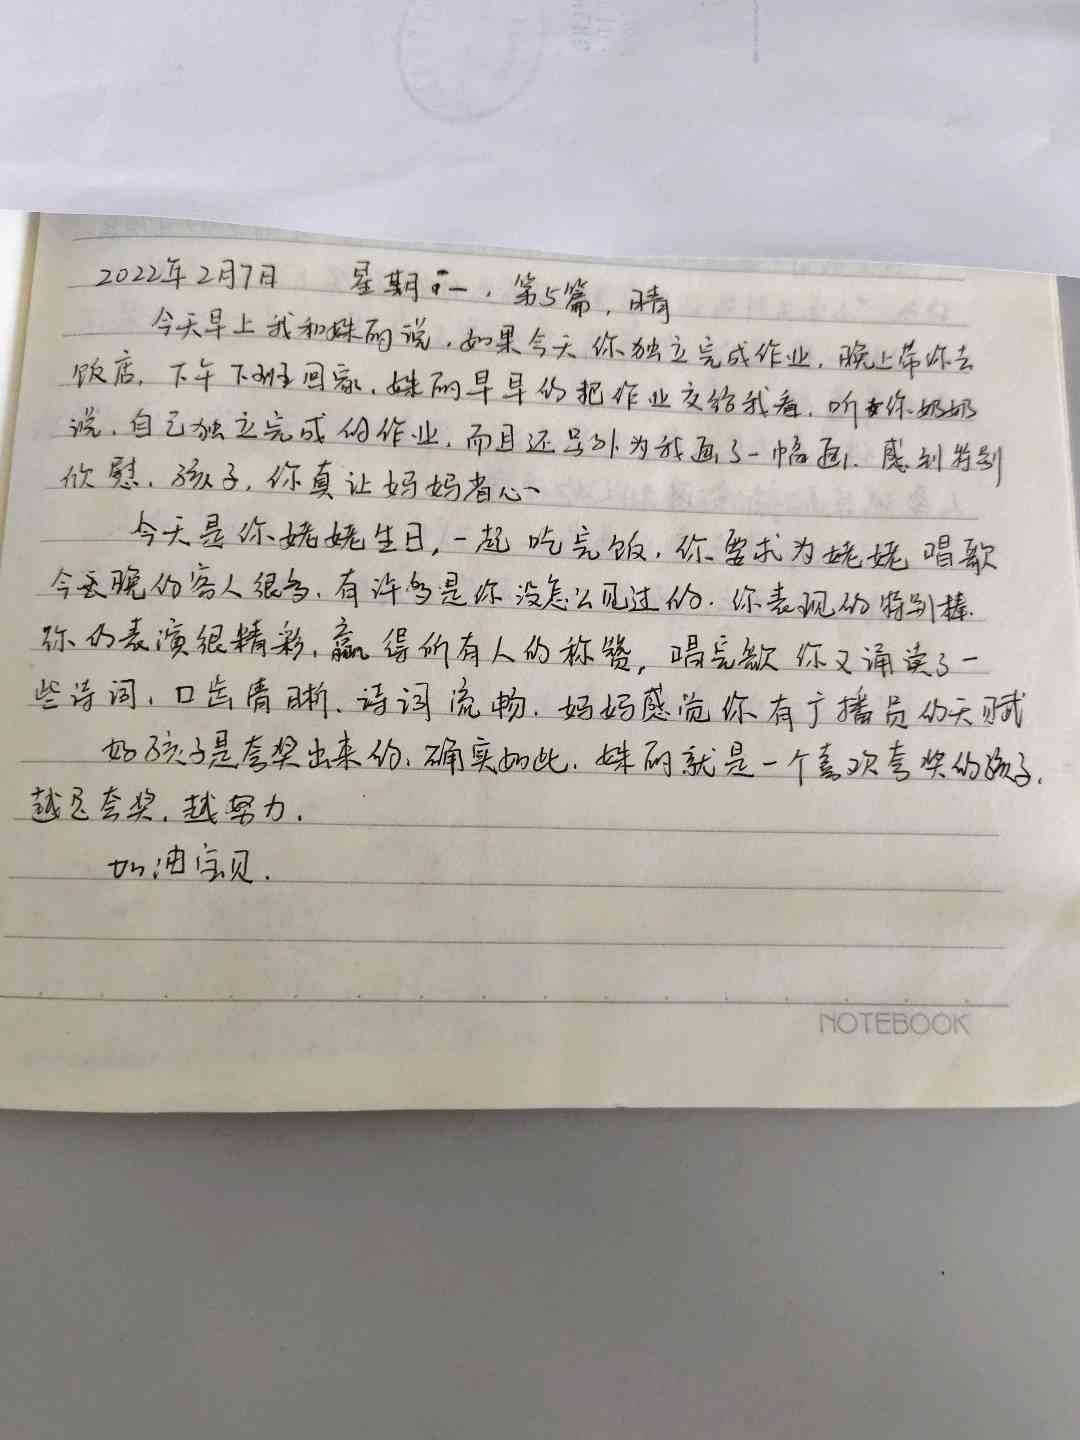 2022年2月7日 星期一，第5篇，晴
今天早上我和姝丽说，如果今天你独立完成作业，晚上带你去
饭店，下午下班回家，姝丽早早的把作业交给我看，听你奶奶
说，自己独立完成的作业，而且还另外为我画了一幅画，感到特别
欣慰，孩子，你真让妈妈省心
今天是你姥姥生日，一起吃完饭，你要求为姥姥唱歌
今天晚的客人很多，有许多是你没怎么见过的，你表现的特别棒.
你的表演很精彩，赢得所有人的称赞，唱完歌你又诵读了一
些诗词，口齿清晰、诗词流畅，妈妈感觉你有广播员的天赋
好孩子是夸奖出来的，确实如此，姝丽就是一个喜欢夸奖的孩子，
越是夸奖，越努力.
加油宝贝.
NOTEBOOK